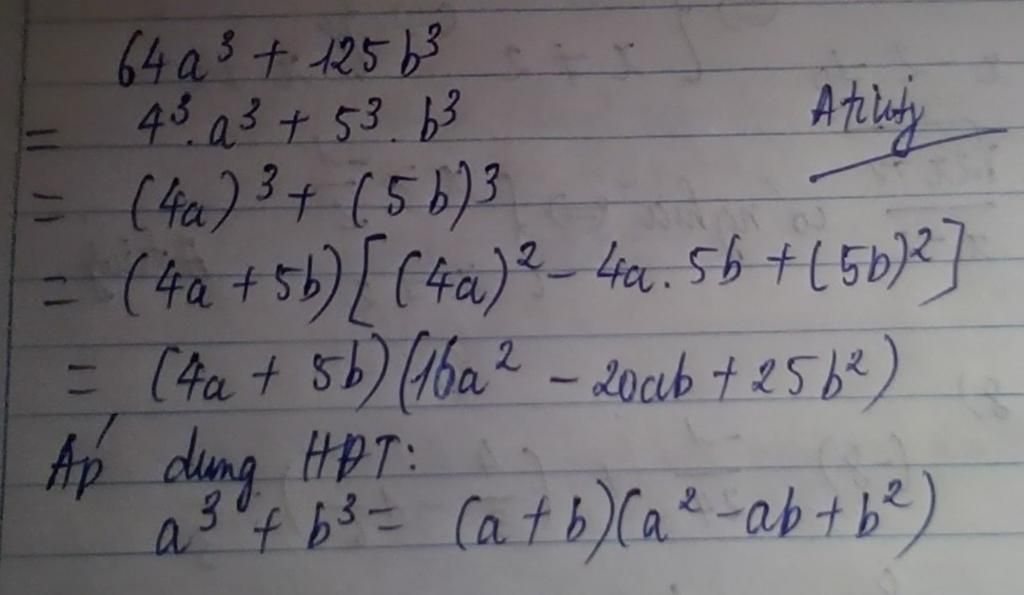 64a³ + 125b³
= 4³.a³ + 5³.b³
= (4a)³ + (5b)³
= (4a + 5b)[(4a)² - 4a.5b + (5b)²]
= (4a + 5b)(16a² - 20ab + 25b²)
Áp dụng HĐT:
a³ + b³ = (a + b)(a² - ab + b²)